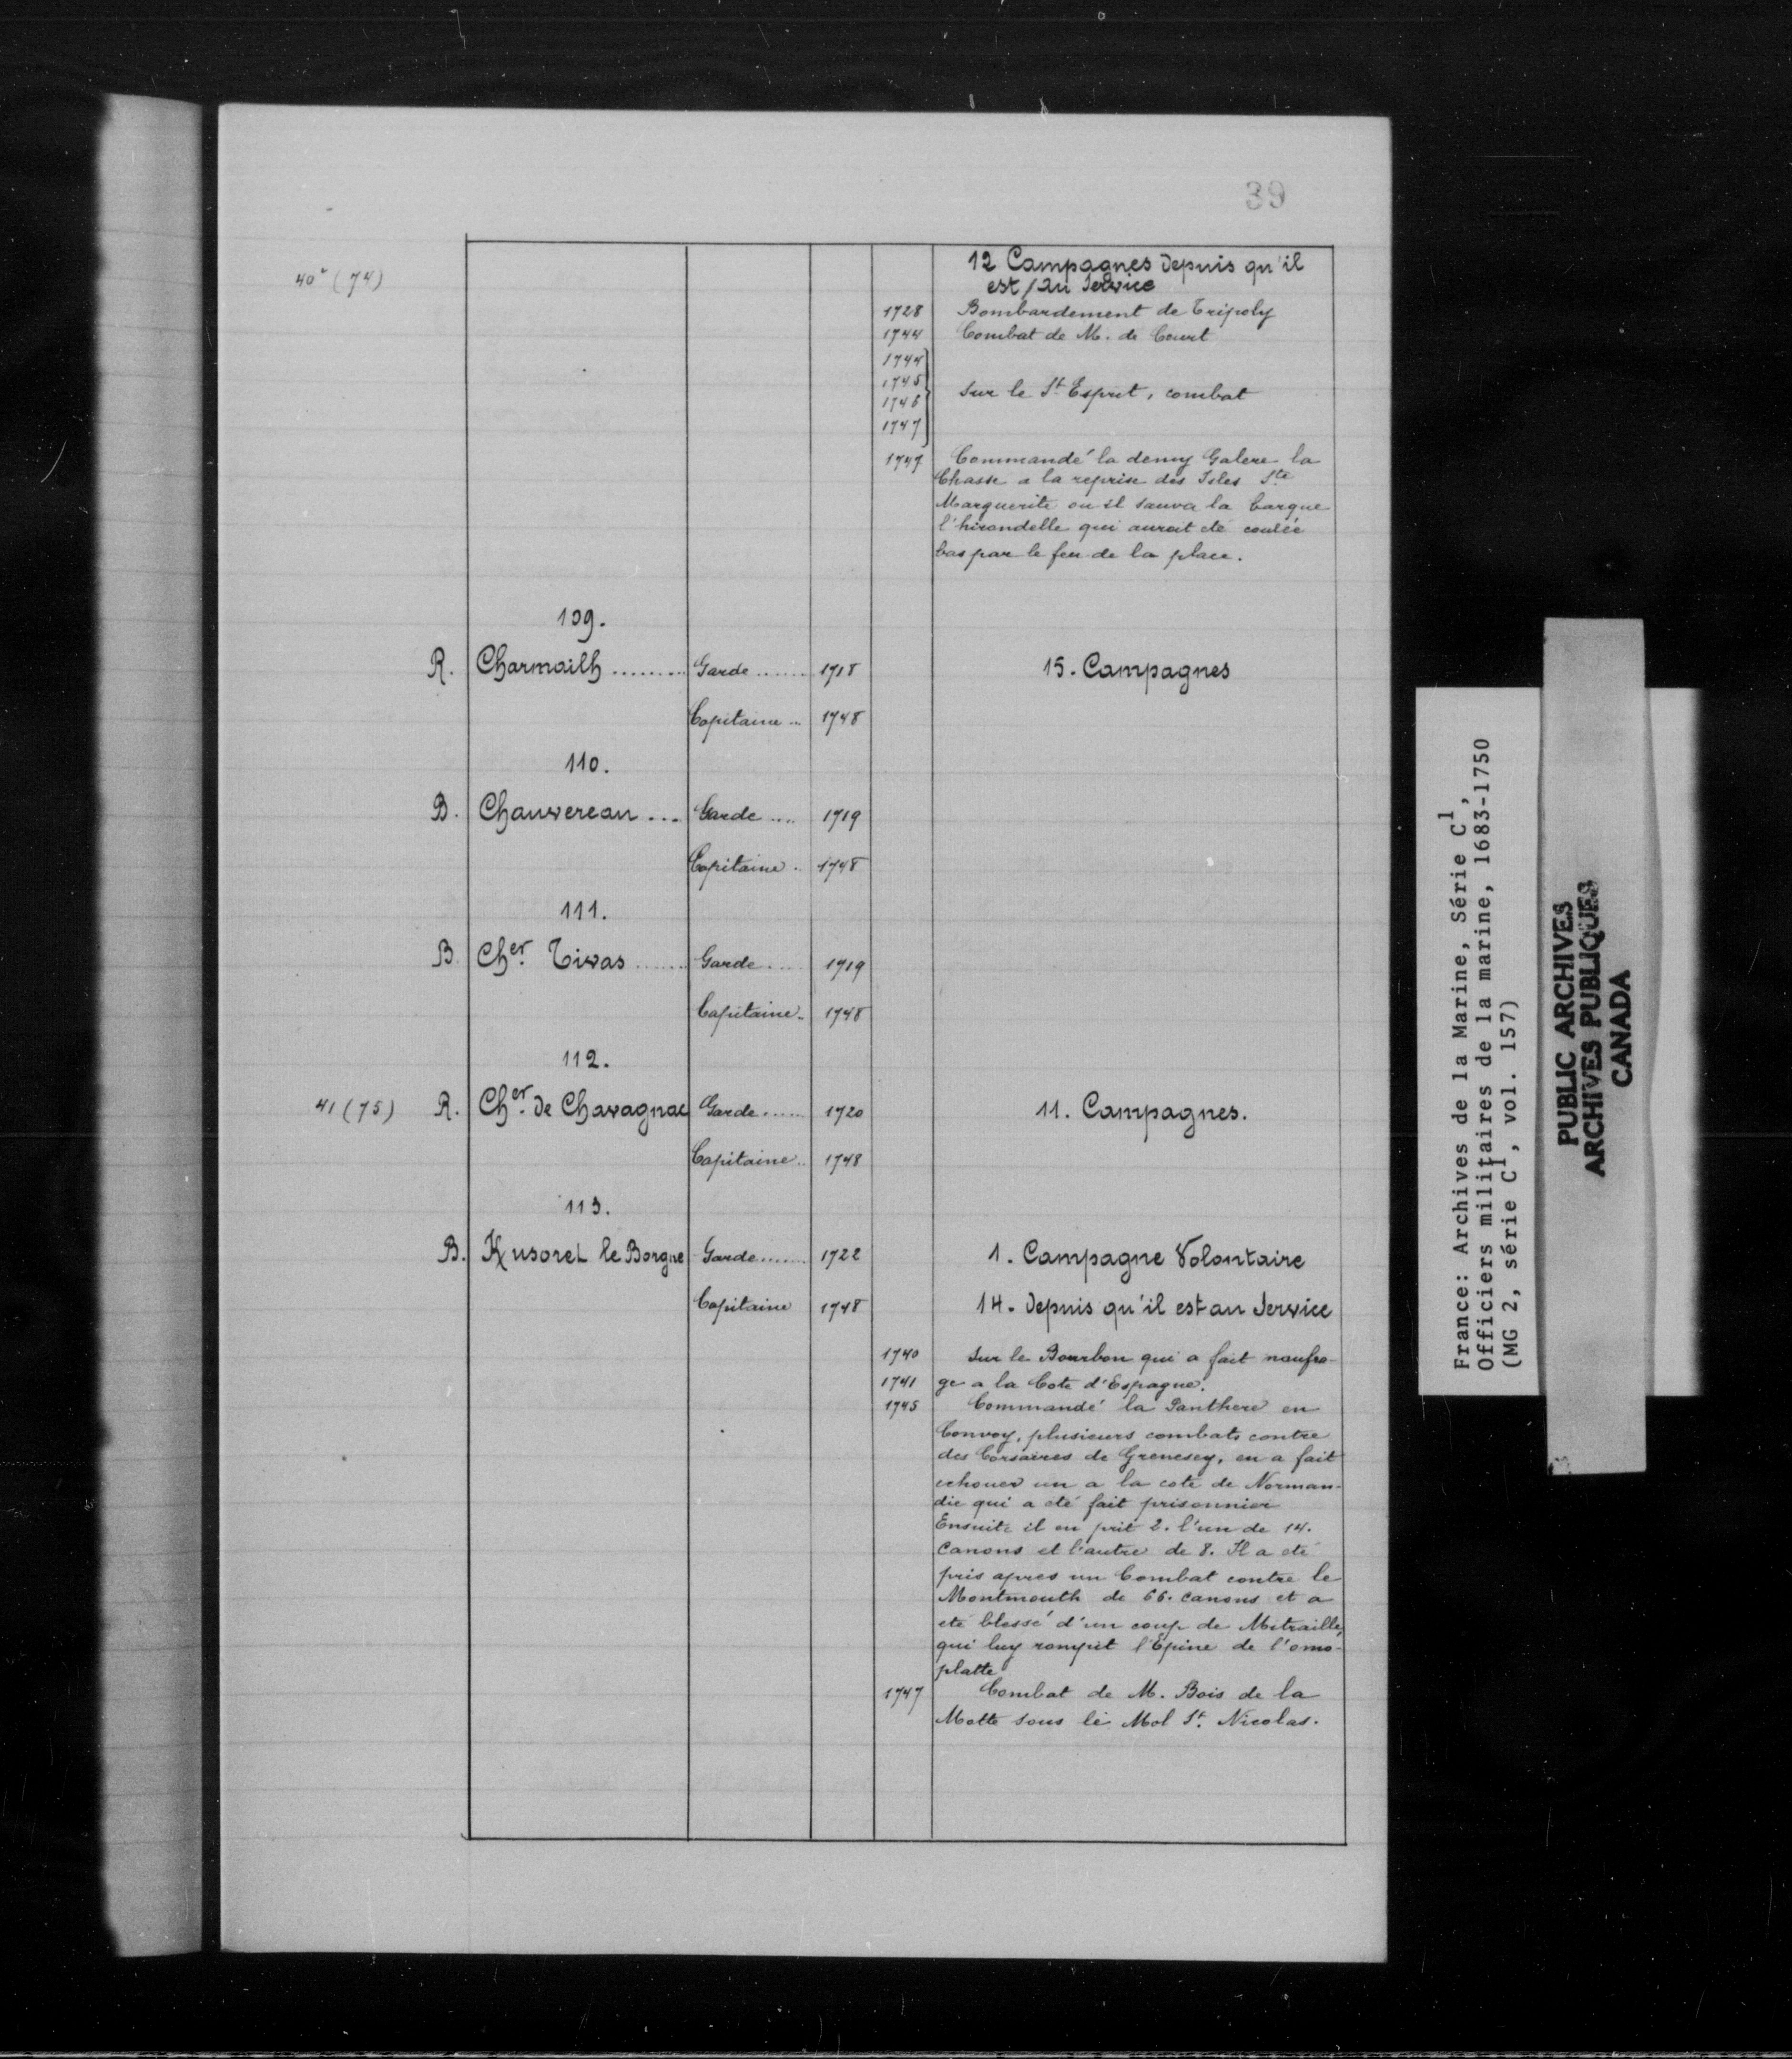 39
40v (74)
12 Campagnes depuis qu'il
est / au Service
1728 Bombardement de Tripoly
1744 Combat de M. de Court
1744
1745
1746
1747
Sur le St Esprit, combat
1747 Commandé la demy Galere la
Chasse a la reprise des Isles Ste
Marguerite ou il sauva la barque
l'hirondelle qui auroit été coulée
bas par le feu de la place.
109.
R. Charmailh ......... Garde ...... 1718 15. Campagnes
Capitaine .. 1748
110.
B. Chauvereau ... Garde .... 1719
Capitaine . 1748
111.
B. Cher. Tivas ...... Garde .... 1719
Capitaine. 1748
112.
41 (75) R. Cher. de Chavagnac Garde ...... 1720 11. Campagnes.
Capitaine .. 1748
113.
B. Kusoret le Borgne Garde ...... 1722 1. Campagne Volontaire
Capitaine 1748 14. depuis qu'il est au Service
1740 Sur le Bourbon qui a fait naufra-
1741 ge a la Cote d'Espagne.
1745 Commandé la Panthere en
Convoy, plusieurs combats contre
des Corsaires de Grenesey, en a fait
echouer un a la cote de Norman-
die qui a été fait prisonnier
Ensuite il en prit 2. l'un de 14.
Canons et l'autre de 8. Il a eté
pris apres un Combat contre le
Montmouth de 66. canons et a
eté blessé d'un coup de Mitraille,
qui luy rompit l'Epine de l'omo-
platte
1747 Combat de M. Bois de la
Motte sous le Mol St. Nicolas.
France: Archives de la Marine, Série C1,
Officiers militaires de la marine, 1683-1750
(MG 2, série C1, vol. 157)
PUBLIC ARCHIVES
ARCHIVES PUBLIQUES
CANADA